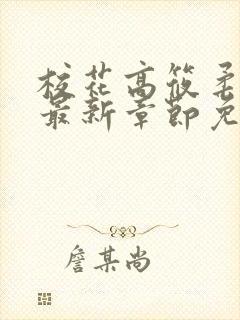 校花高筱柔
最新章節免
詹某尚